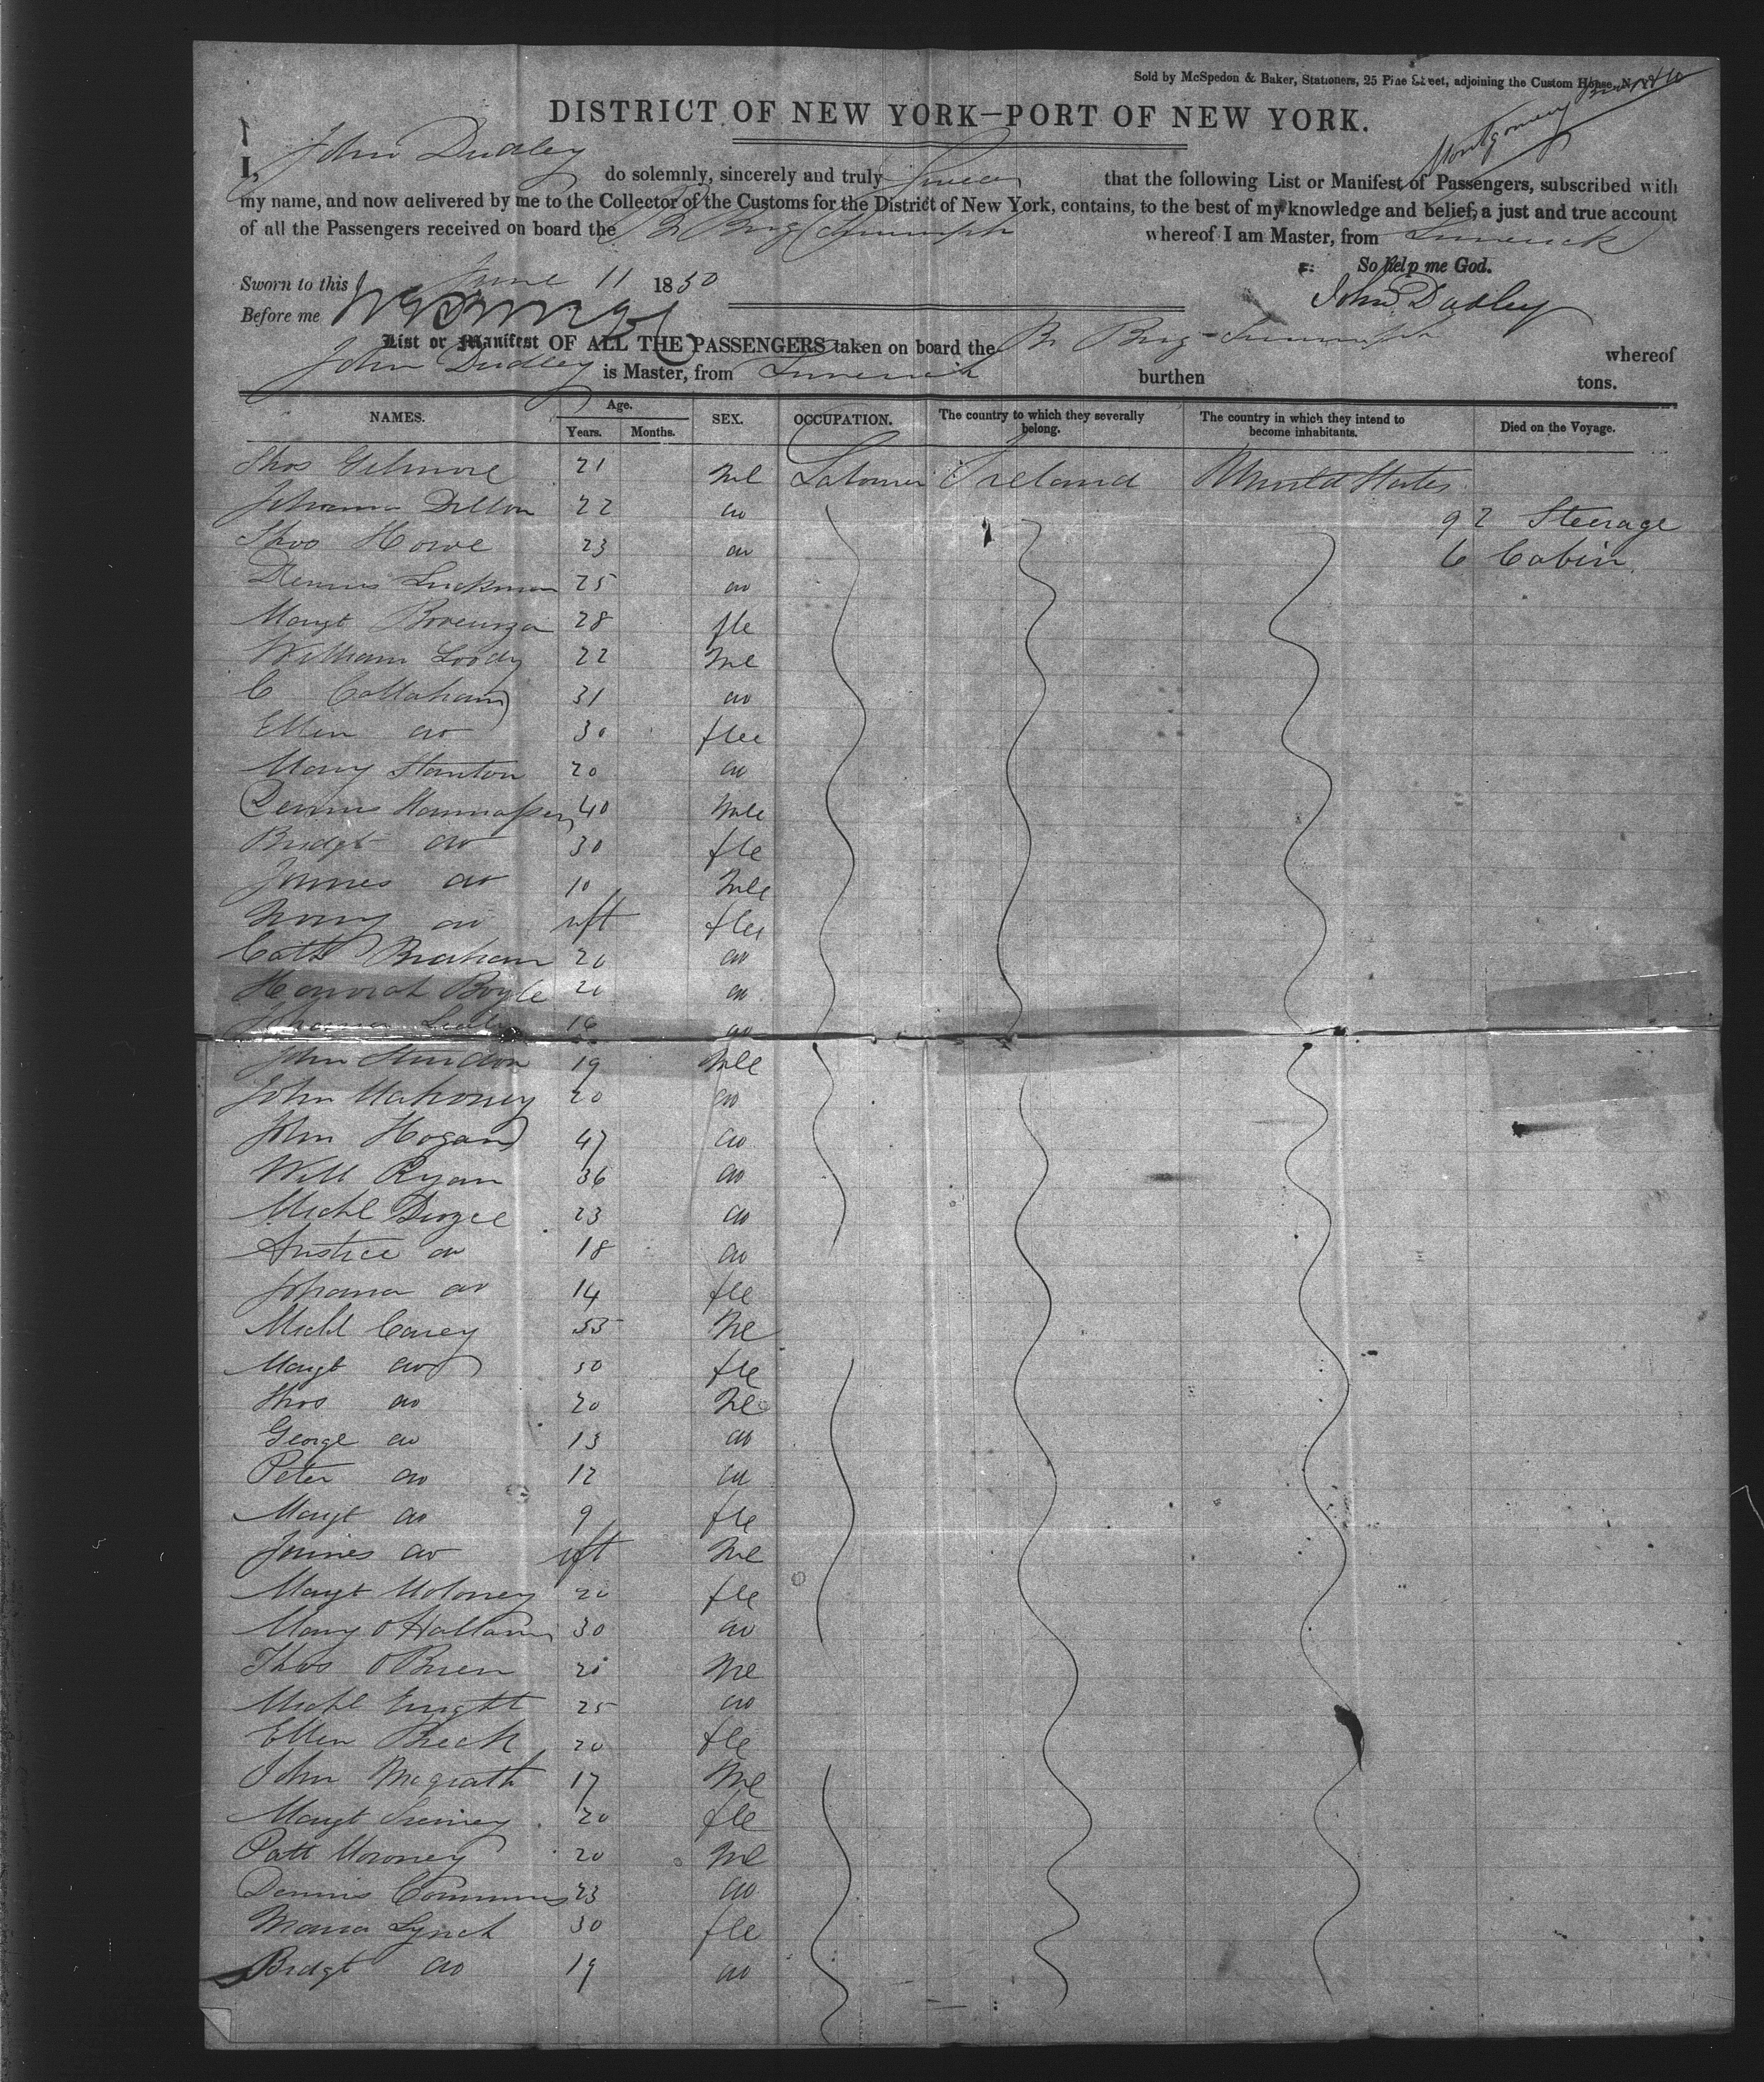 Sold by McSpedon & Baker, Stationers, 25 Pine Street, adjoining the Custom House, N. Y.
DISTRICT OF NEW YORK—PORT OF NEW YORK.
Montgomery
I, John Dudley do solemnly, sincerely and truly Swear that the following List or Manifest of Passengers, subscribed with
my name, and now delivered by me to the Collector of the Customs for the District of New York, contains, to the best of my knowledge and belief, a just and true account
of all the Passengers received on board the Br Brig Triumph whereof I am Master, from Limerick
So help me God.
Sworn to this June 11 1850
John Dudley
Before me
List or Manifest OF ALL THE PASSENGERS taken on board the Br Brig Triumph whereof
John Dudley is Master, from Limerick burthen tons.
NAMES. Age. Years. Months. SEX. OCCUPATION. The country to which they severally belong. The country in which they intend to become inhabitants. Died on the Voyage.
Thos Gilmore 21 Ml Labourer Ireland United States
Johanna Dillon 22 do 92 Steerage
Thos Howe 23 do 6 Cabin
Dennis 25 do
Margt 28 fle
William 22 Ml
C Callahan 31 do
Ellen do 30 flee
Mary Stanton 20 do
Dennis 40 Mle
Bridgt do 30 fle
James do 10 Mle
do inft fle
Cath 20 do
Honorah Boyle 20 do
16 do
John 19 Mle
John Mahoney 20 do
John Hogan 47 do
Will Ryan 36 do
Michl 23 do
do 18 do
Johana do 14 fle
Michl Carey 55 Ml
Margt do 50 fle
Thos do 20 Ml
George do 13 do
Peter do 12 do
Margt do 9 fle
James do inft Ml
Margt Moloney 20 fle
Mary 30 do
Thos OBrien 20 Ml
Michl Enright 25 do
Ellen 20 fle
John Mcgrath 17 Ml
Margt 20 fle
Patt Moroney 20 Ml
Dennis Commins 23 do
Maria Lynch 30 fle
Bridgt do 19 do